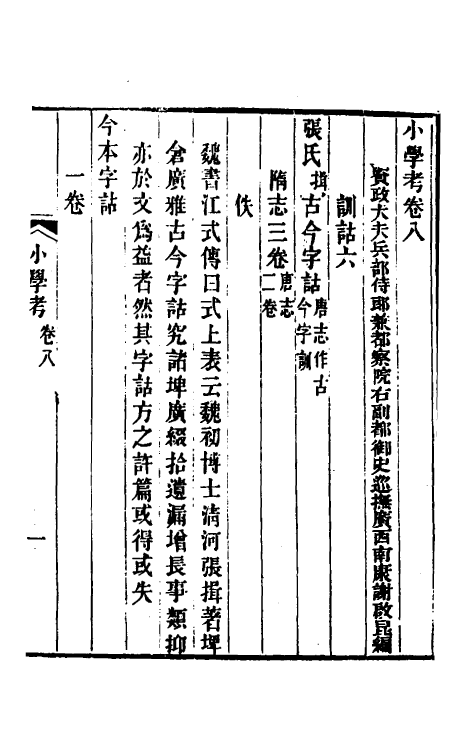 小學考卷八
資政大夫兵部侍郎兼都察院右副都御史巡撫廣西南康謝啟昆編
訓詁六
張氏揖古今字詁唐志作古今字訓
隋志三卷唐志二卷
佚
魏書江式傳曰式上表云魏初博士淸河張揖著埤
倉廣雅古今字詁究諸埤廣綴拾遺漏增長事類抑
亦於文爲益者然其字詁方之許篇或得或失
今本字詁
一卷
小學考 卷八 一